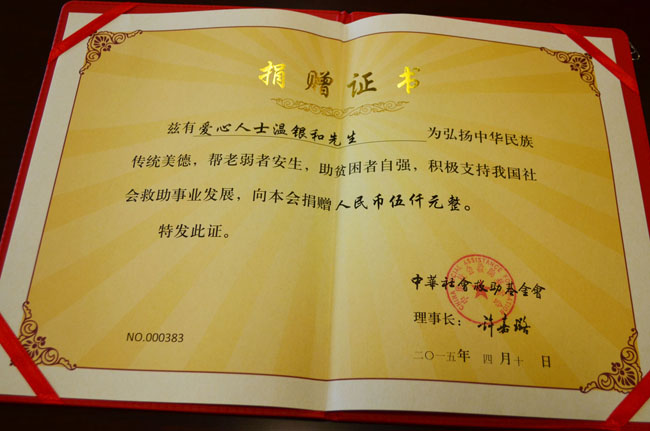 捐赠证书
兹有爱心人士温银和先生为弘扬中华民族
传统美德，帮老弱者安生，助贫困者自强，积极支持我国社
会救助事业发展，向本会捐赠人民币伍仟元整。
特发此证。
中華社會救助基金會
理事长：许嘉璐
NO.000383
二〇一五年 四月十 日